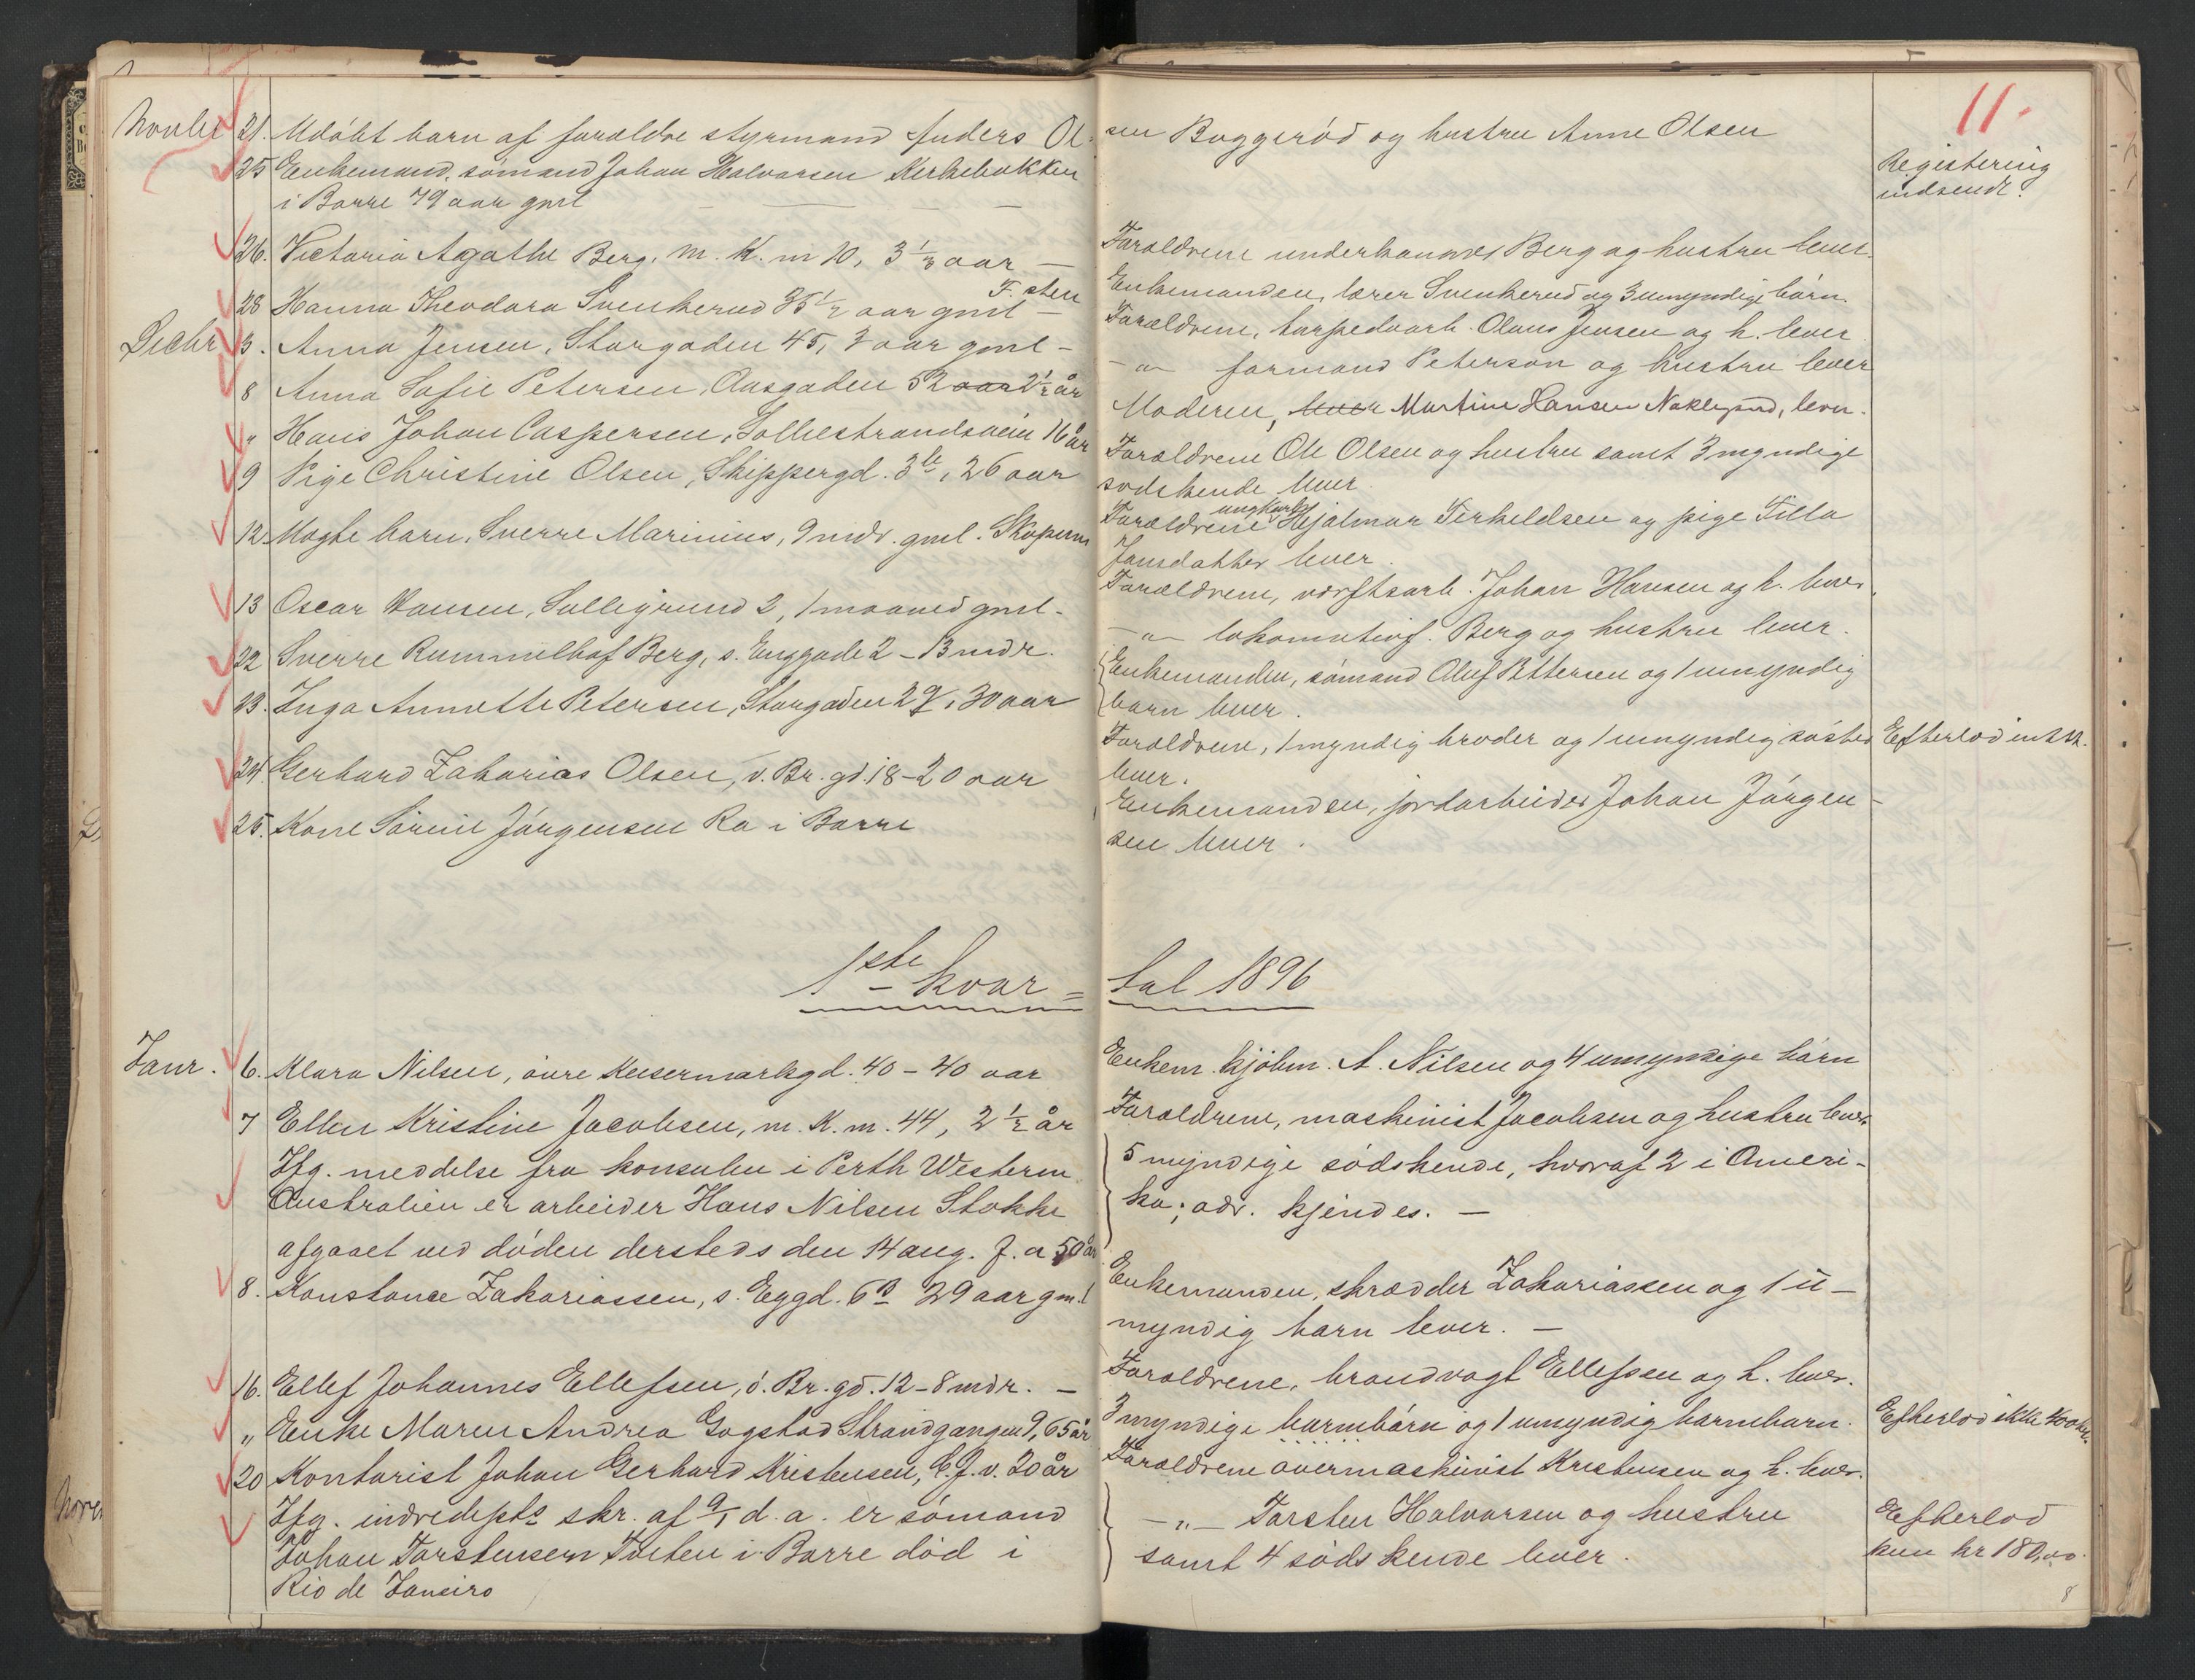 11.
Novbr 21. Udøbt barn af forældre styrmand Anders Ol-
sen Buggerød og hustru Anne Olsen
25 Enkemand, sømand Johan Halvorsen Kirkebakken
i Borre 79 aar gml
Registering
indsendt.
26. Victoria Agathe Berg, m. K. m 10, 3 1/2 aar —
Forældrene underkanoner Berg og hustru lever.
28 Hanna Theodora Svenkerud 35 1/2 aar gml — F. sten
Enkemanden, lærer Svenkerud og 3 umyndige børn.
Decbr 3. Anna Jensen, Storgaden 45, 3 aar gml -
Forældrene, torpedoarb. Olaus Jensen og h. lever
8 Anna Sofie Petersen, Aasgaden 52 aar 2 1/2 år
—"— formand Peterson og hustru lever
" Hans Johan Caspersen, Solliestrandsveien 16 år
Moderen, lever Martine Hansen Naklegrund, lever.
9 Pige Christine Olsen, Skippergd. 3 b, 26 aar
Forældrene Ole Olsen og hustru samt 3 myndige
sødskende lever
12 Uægte barn, Sverre Marinius, 9 mdr. gml. Skopum
Forældrene ungkarl Hjalmar Terkeldsen og pige Tilla
Jansdatter lever.
13 Oscar Hansen, Solliegrund 2, 1 maaned gml.
Forældrene, verftsarb. Johan Hansen og h. lever.
22 Sverre Rummelhof Berg, s. Enggade 2 – 13 mdr.
—"— lokomotivf. Berg og hustru lever.
23. Inga Annette Petersen, Storgaden 29, 30 aar
Enkemanden, sømand Oluf Pettersen og 1 umyndig
barn lever.
24. Gerhard Zakarias Olsen, v. Br. gd. 18 – 20 aar
Forældrene, 1 myndig broder og 1 umyndig søster
lever.
Efterlod intet.
25. Kone Sørine Jørgensen Ra i Borre
Enkemanden, jordarbeider Johan Jørgen-
sen lever.
1ste kvar=
tal 1896
Janr. 6. Klara Nilsen, øvre Keisermarkgd. 40 – 40 aar
Enkem. kjøbm. A. Nilsen og 4 umyndige børn
7 Ellen Kristine Jacobsen, m. K. m. 44, 2 1/2 år
Forældrene, maskinist Jacobsen og hustru lever.
Ifg. meddelse fra konsulen i Perth Western
Australien er arbeider Hans Nilsen Stokke
afgaaet ved døden dersteds den 14 aug. f. a 50 år
5 myndige sødskende, hvoraf 2 i Ameri-
ka; adr. kjendes. —
8. Konstance Zakariassen, s. Eggd. 6 B 29 aar gml
Enkemanden, skrædder Zakariassen og 1 u-
myndig barn lever. —
16. Ellef Johannes Ellefsen, ø. Br. gd. 12 – 8 mdr. —
Forældrene, brandvagt Ellefsen og h. lever.
" Enke Maren Andrea Gogstad Strandgangen 9, 65 år
3 myndige barnebørn og 1 umyndig barnebarn.
Efterlod ikke 400 kr.
20 Kontorist Johan Gerhard Kristensen, C. J. v. 20 år
Forældrene overmaskinist Kristensen og h. lever.
Ifg. indredepts skr. af 9/1 d. a. er sømand
Johan Torstensen Torten i Borre død i
Rio de Janeiro
—"— Torsten Halvorsen og hustru
samt 4 sødskende lever.
Efterlod
kun kr 180,00.
8